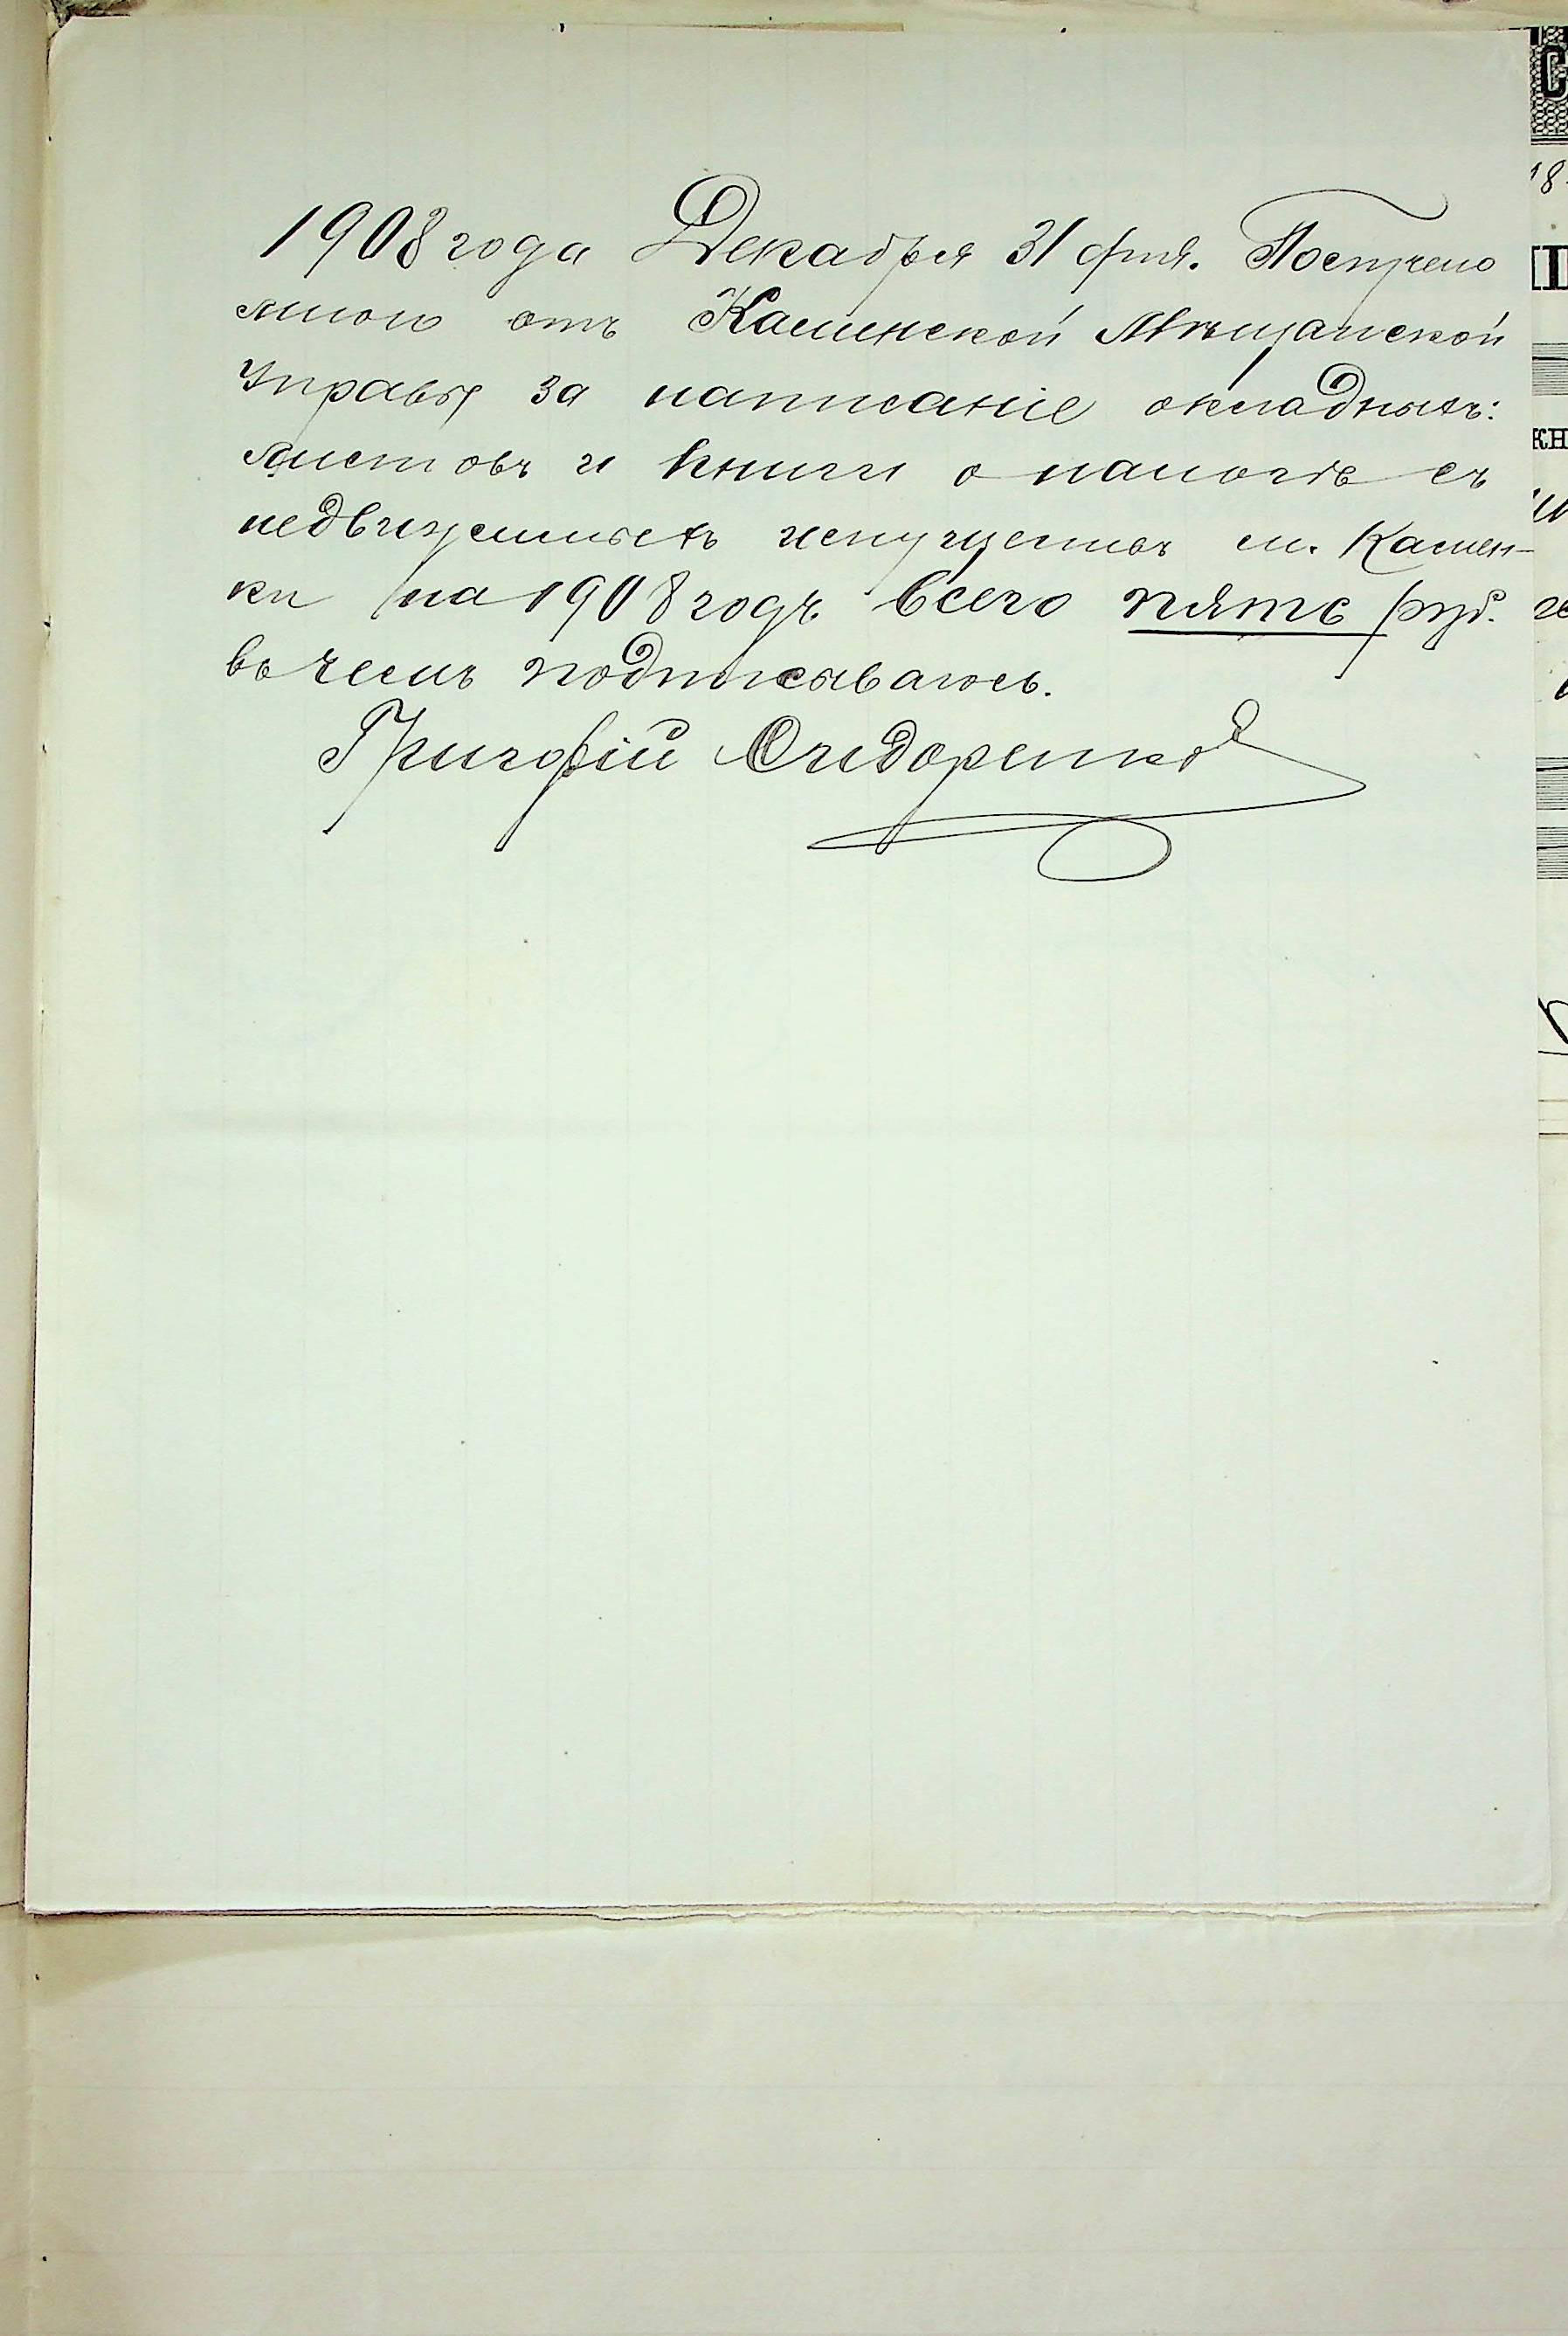 1908 года Декабря 31 дня. Получено
мною отъ Каменской Мѣщанской
Управы за написаніе окладныхъ:
листовъ и книги о налогѣ съ
недвижимыхъ имуществъ м. Камен-
ки на 1908 годъ всего пять руб.
въ чемъ подписываюсь.
Григорій Сидоренко